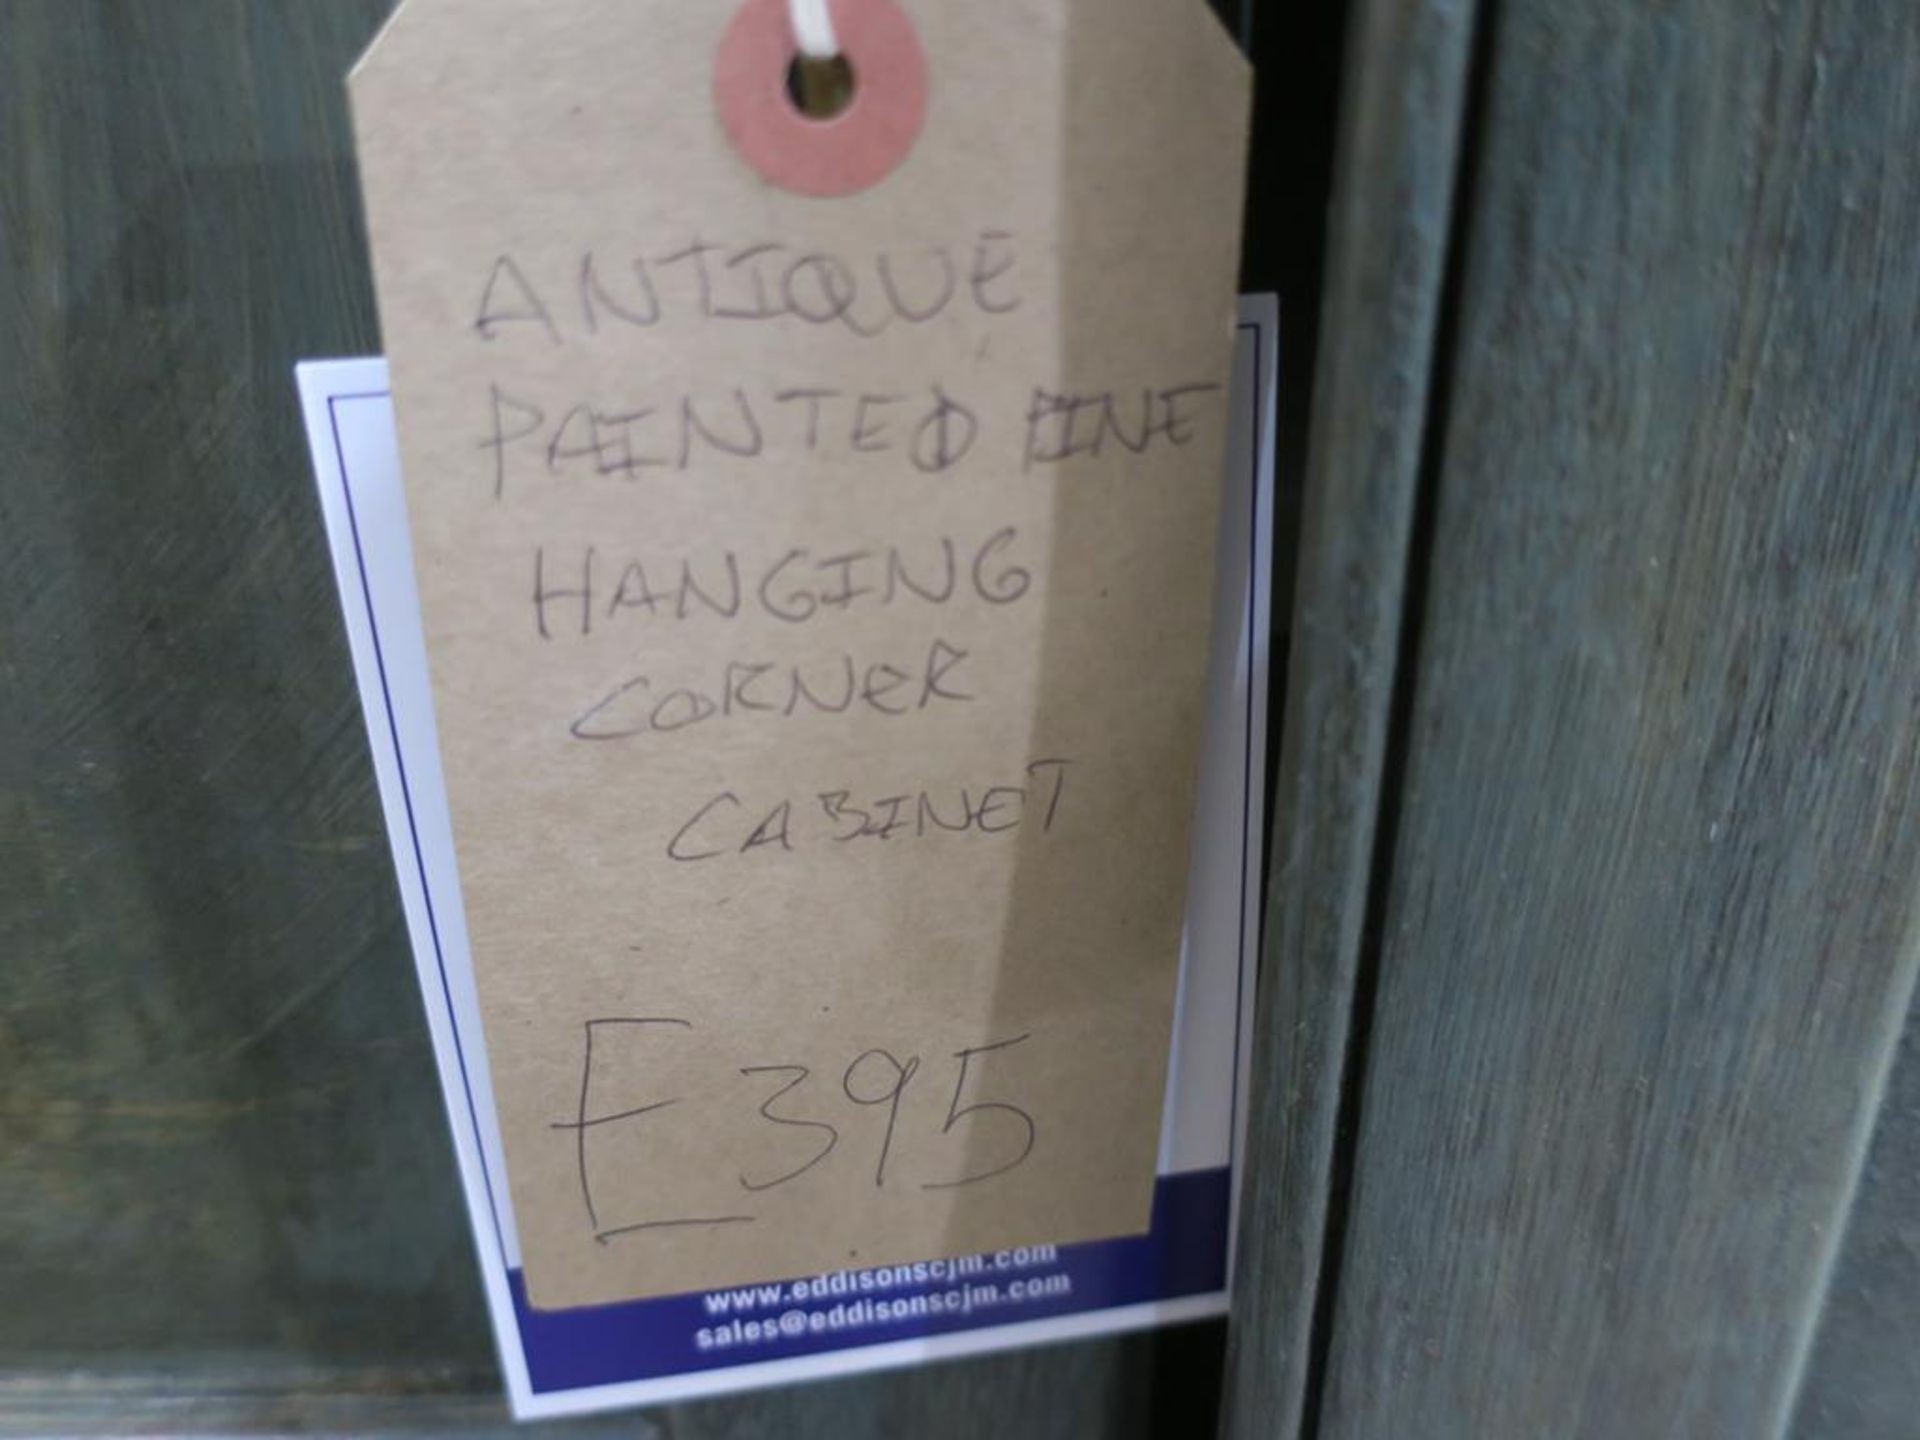 ANTIQUE
PAINTED PINE
HANGING
CORNER
CABINET
£395
www.eddisonscjm.com
sales@eddisonscjm.com